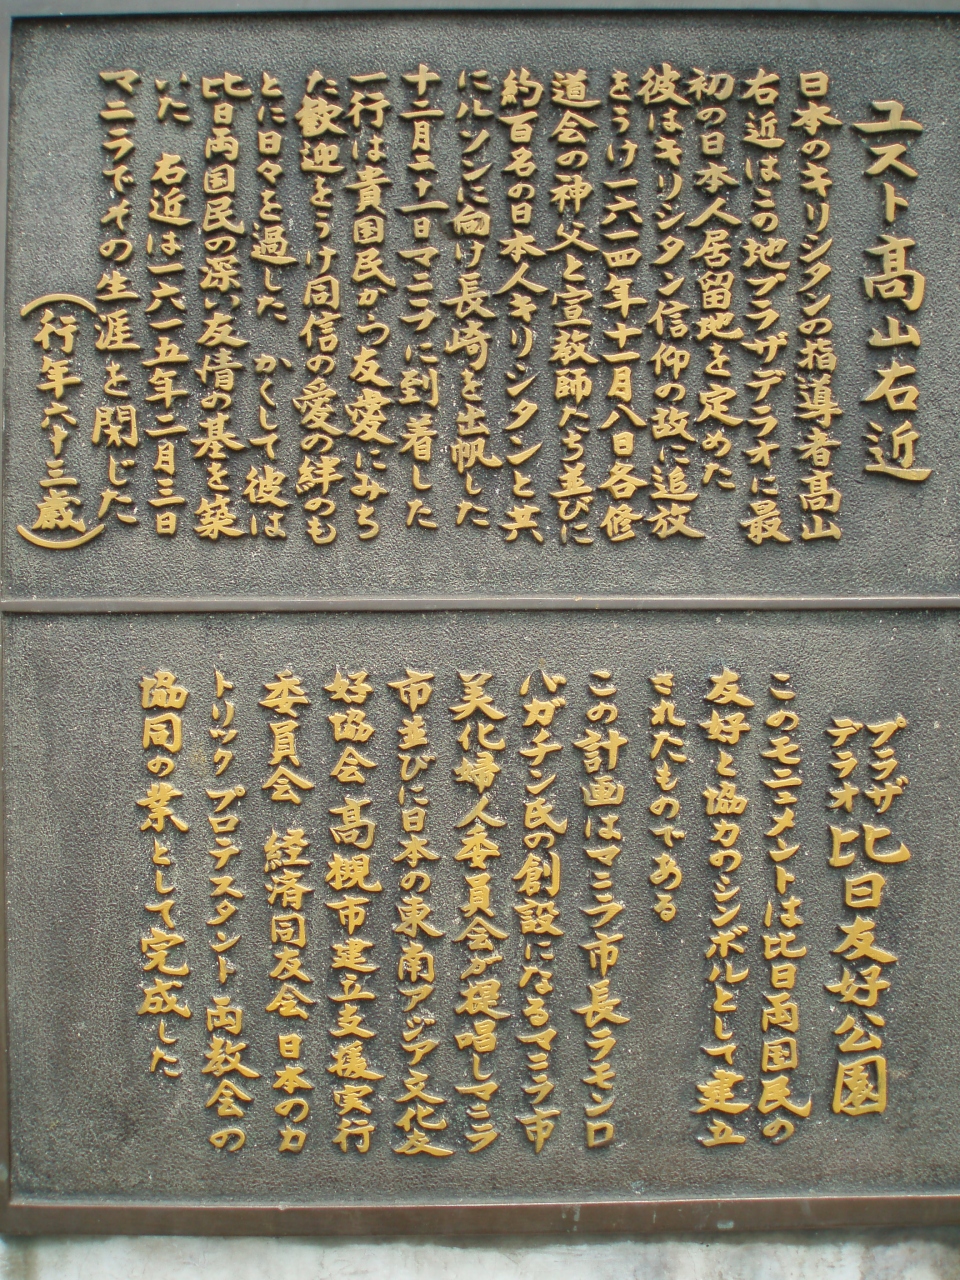 ユスト高山右近
日本のキリシタンの指導者高山
右近はこの地プラザデラオに最
初の日本人居留地を定めた
彼はキリシタン信仰の故に追放
をうけ一六一四年十一月八日各修
道会の神父と宣教師たち並びに
約百名の日本人キリシタンと共
にルソンに向け長崎を出帆した
十二月二十一日マニラに到着した
一行は貴国民から友愛にみち
た歓迎をうけ同信の愛の絆のも
とに日々を過した かくして彼は
比日両国民の深い友情の基を築
いた 右近は一六一五年二月三日
マニラでその生涯を閉じた
(行年六十三歳)
プラザ
デラオ 比日友好公園
このモニュメントは比日両国民の
友好と協力のシンボルとして建立
されたものである
この計画はマニラ市長ラモンロ
バガチン氏の創設になるマニラ市
美化婦人委員会が提唱しマニラ
市並びに日本の東南アジア文化友
好協会 高槻市建立支援実行
委員会 経済同友会 日本のカ
トリック プロテスタント両教会の
協同の業として完成した